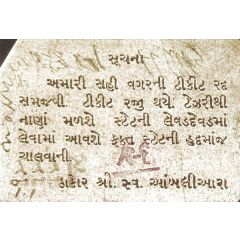 સૂચના
અમારી સહી વગરની ટીકીટ રદ
સમજવી. ટીકીટ રજુ થયે. ટ્રેઝરીથી
નાણાં મળશે. સ્ટેટની લેવડદેવડમાં
લેવામાં આવશે ફક્ત સ્ટેટની હુદમાંજ
ચાલવાની.
ઠાકોર શ્રી. સ્વ. આંબલીઆરા